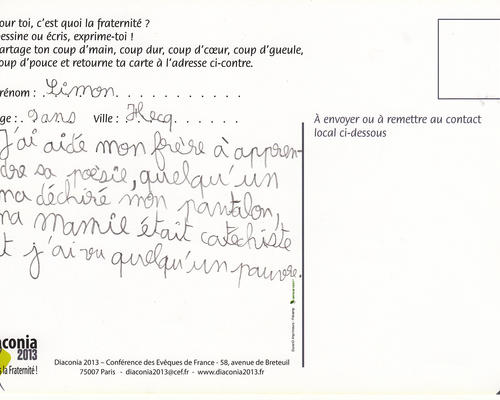 our toi, c'est quoi la fraternité ?
essine ou écris, exprime-toi !
artage ton coup d'main, coup dur, coup d'cœur, coup d'gueule,
oup d'pouce et retourne ta carte à l'adresse ci-contre.
rénom : Simon
ge : 9 ans Ville : Hecq
À envoyer ou à remettre au contact
local ci-dessous
J'ai aidé mon frère à appren-
dre sa poésie, quelqu'un
ma déchiré mon pantalon,
ma Mamie était catéchiste
t j'ai vu quelqu'un pauvre.
aconia
2013
s la Fraternité !
Diaconia 2013 – Conférence des Evêques de France - 58, avenue de Breteuil
75007 Paris - diaconia2013@cef.fr - www.diaconia2013.fr